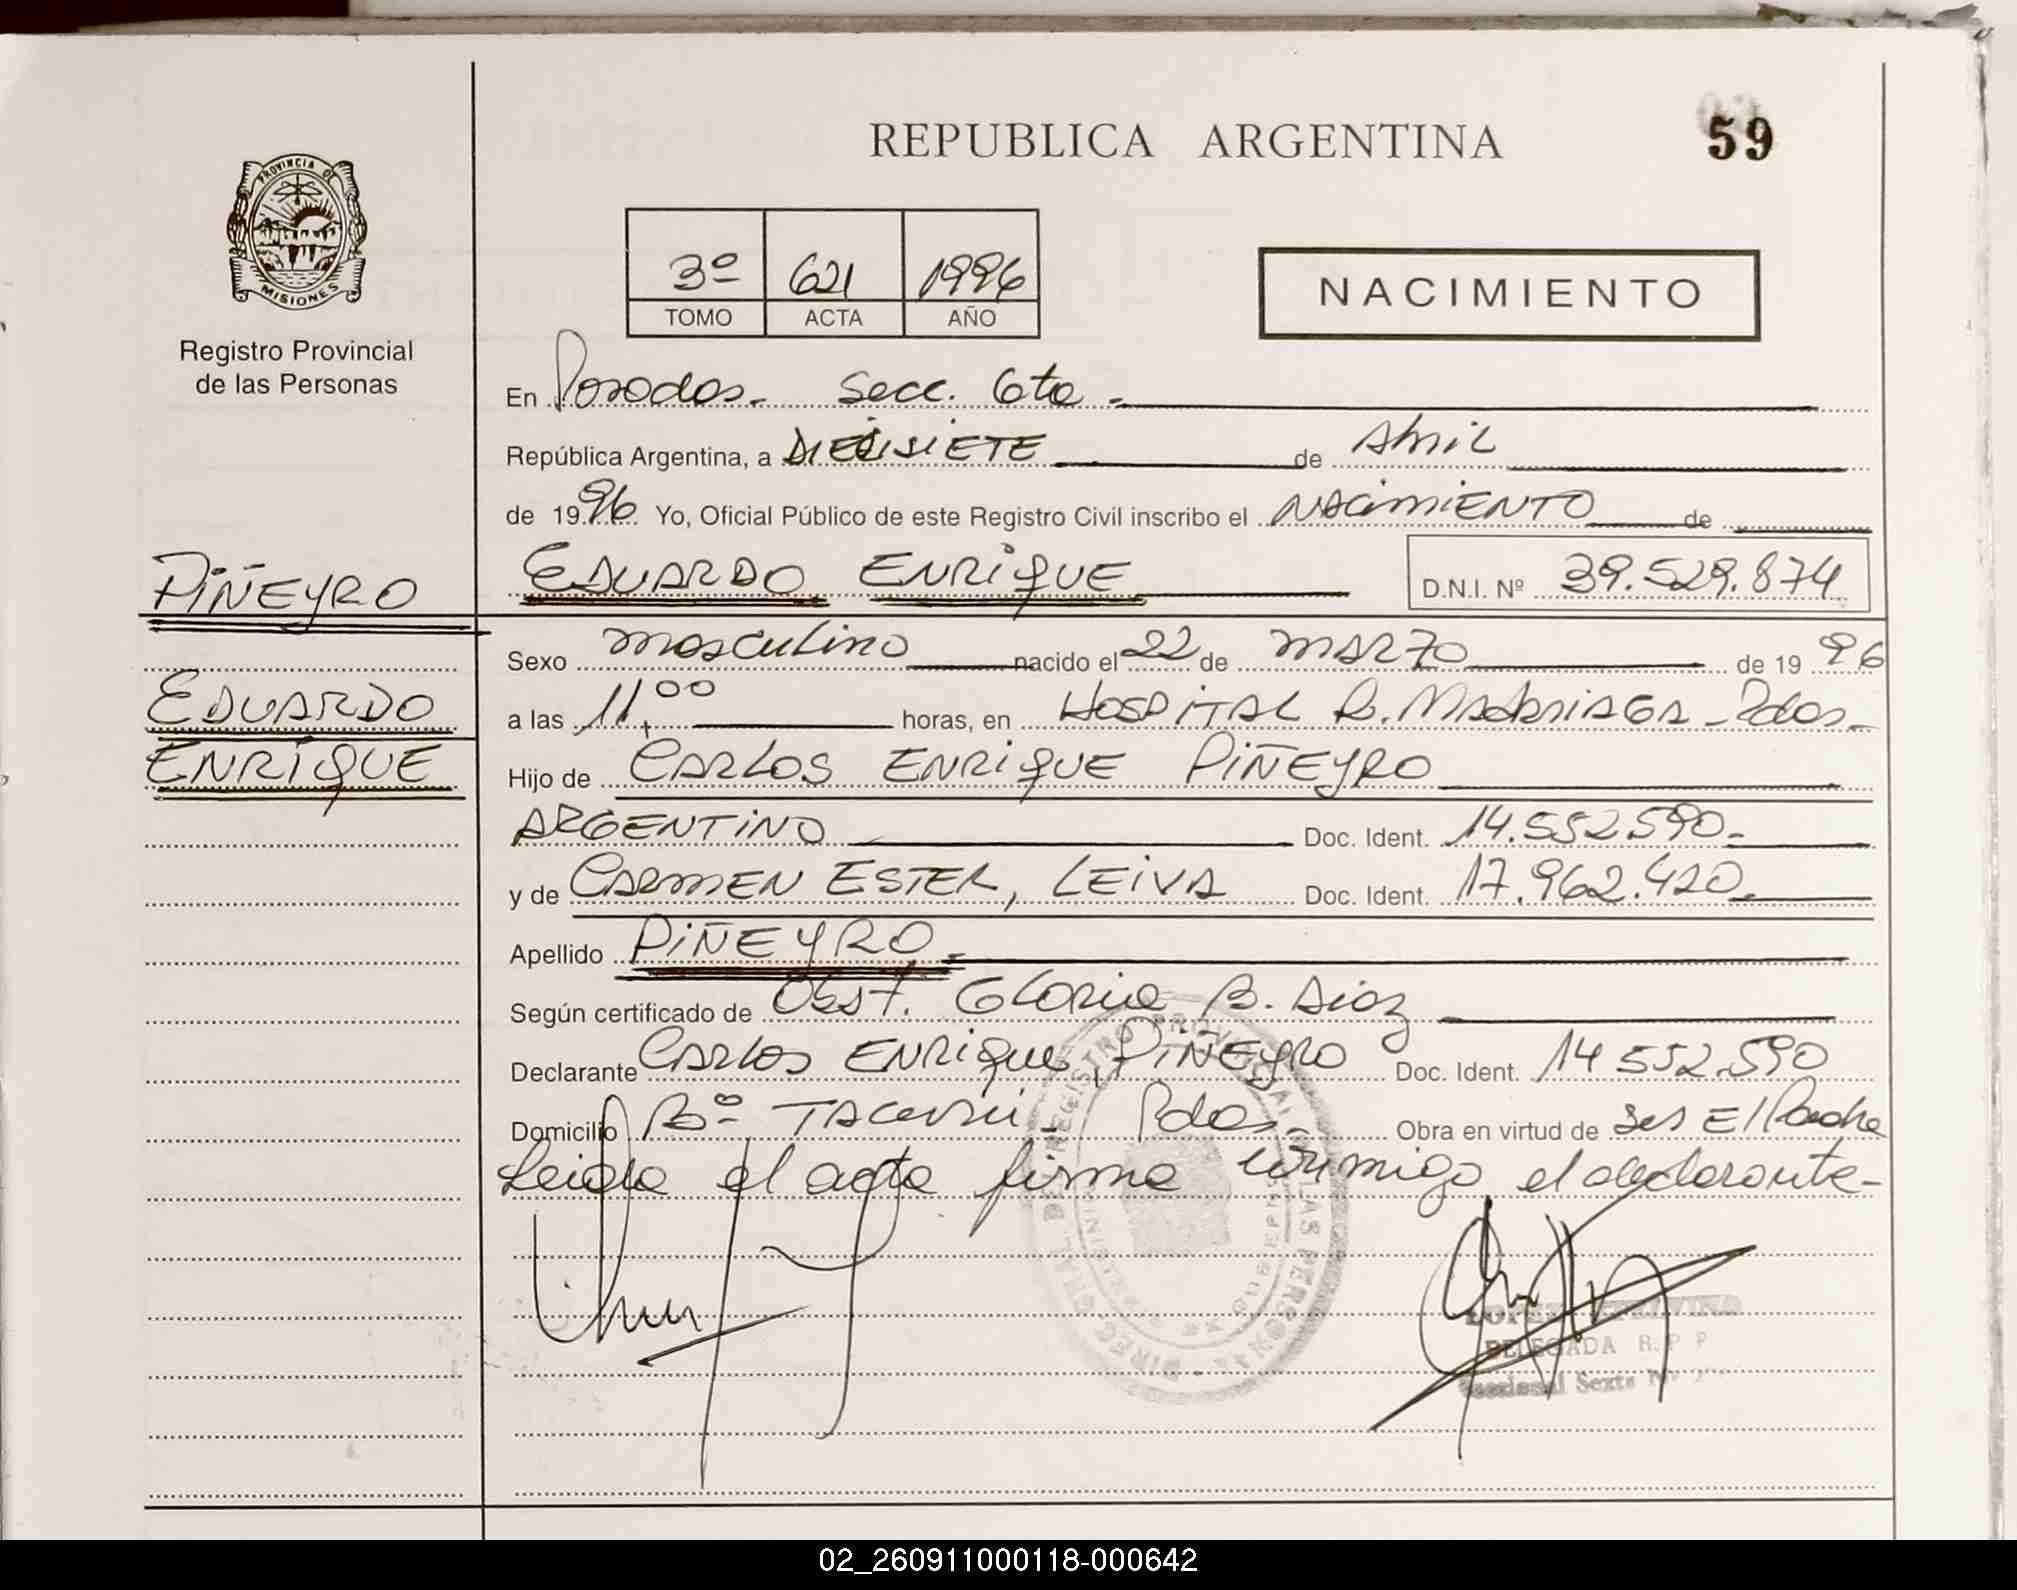 REPUBLICA ARGENTINA
59
PROVINCIA DE
MISIONES
Registro Provincial
de las Personas
3º 621 1996
TOMO ACTA AÑO
NACIMIENTO
En Posadas- Secc. 6ta-
República Argentina, a DIECISIETE de Abril
de 1996 Yo, Oficial Público de este Registro Civil inscribo el NACIMIENTO de
PIÑEYRO
EDUARDO ENRIQUE D.N.I. Nº 39.529.874
Sexo masculino nacido el 22 de MARZO de 1996
EDUARDO
a las 11,00 horas, en HOSPITAL R. MADARIAGA-Pdas-
ENRIQUE
Hijo de CARLOS ENRIQUE PIÑEYRO
ARGENTINO Doc. Ident. 14.552590-
y de CARMEN ESTER, LEIVA Doc. Ident. 17.962.420.
Apellido PIÑEYRO-
Según certificado de Obst. Gloria B. Diaz
Declarante CARLOS ENRIQUE, PIÑEYRO Doc. Ident. 14 552.590
Domicilio Bº TACURU- Pdas- Obra en virtud de ser El Padre
Leida el acta firma conmigo el declarante-
DELEGADA R.P.P
Seccional Sexta
02_260911000118-000642